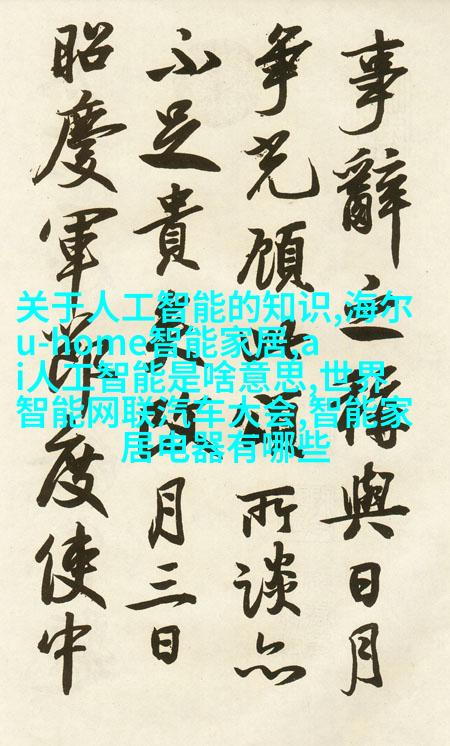 事辭之稱與日月
爭光顧此頌所談亦
不足貴矣月三日
昭慶軍節度使中
关于人工智能的知识,海尔
u-home智能家居,a
i人工智能是啥意思,世界
智能网联汽车大会,智能家
居电器有哪些